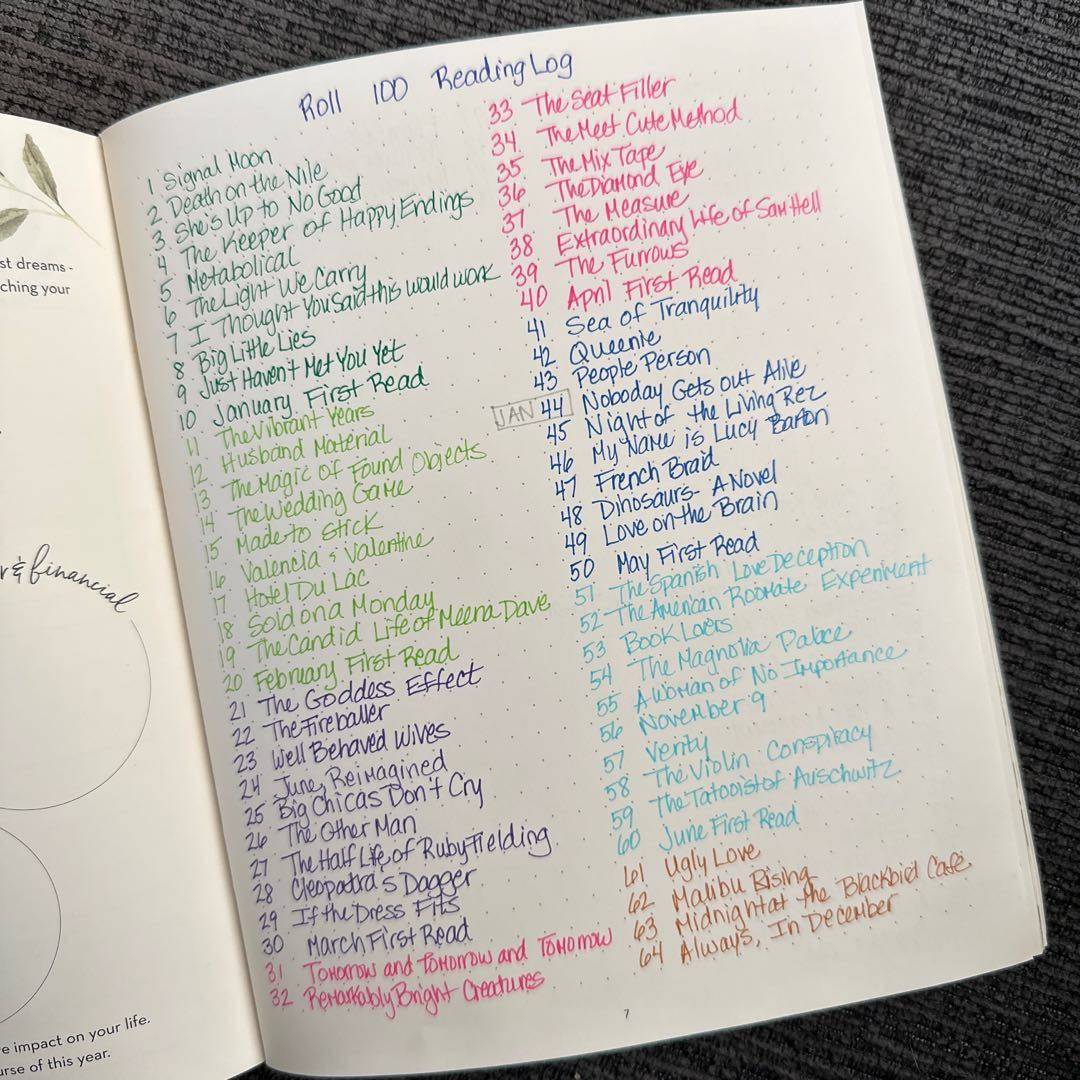 st dreams -
ching your
r & financial
e impact on your life.
urse of this year.
Roll 100 Reading Log
1 Signal Moon
2 Death on the Nile
3 She's Up to No Good
4 The Keeper of Happy Endings
5 Metabolical
6 The Light We Carry
7 I Thought You Said this would work
8 Big Little Lies
9 Just Haven't Met You Yet
10 January First Read
11 The Vibrant Years
12 Husband Material
13 The Magic of Found Objects
14 The Wedding Game
15 Made to Stick
16 Valencia & Valentine
17 Hotel Du Lac
18 Sold on a Monday
19 The Candid Life of Meena Dave
20 February First Read
21 The Goddess Effect
22 The Fireballer
23 Well Behaved Wives
24 June, Reimagined
25 Big Chicas Don't Cry
26 The Other Man
27 The Half Life of Ruby Fielding
28 Cleopatra's Dagger
29 If the Dress Fits
30 March First Read
31 Tomorrow and Tomorrow and Tomorrow
32 Remarkably Bright Creatures
33 The Seat Filler
34 The Meet Cute Method
35 The Mix Tape
36 The Diamond Eye
37 The Measure
38 Extraordinary Life of Sam Hell
39 The Furrows
40 April First Read
41 Sea of Tranquility
42 Queenie
43 People Person
JAN 44 Noboday Gets out Alive
45 Night of the Living Rez
46 My Name is Lucy Barton
47 French Braid
48 Dinosaurs- A Novel
49 Love on the Brain
50 May First Read
51 The Spanish Love Deception
52 The American Roomate Experiment
53 Book Lovers
54 The Magnolia Palace
55 A Woman of No Importance
56 November 9
57 Verity
58 The Violin Conspiracy
59 The Tatooist of Auschwitz
60 June First Read
61 Ugly Love
62 Malibu Rising
63 Midnight at the Blackbird Café
64 Always, In December
7